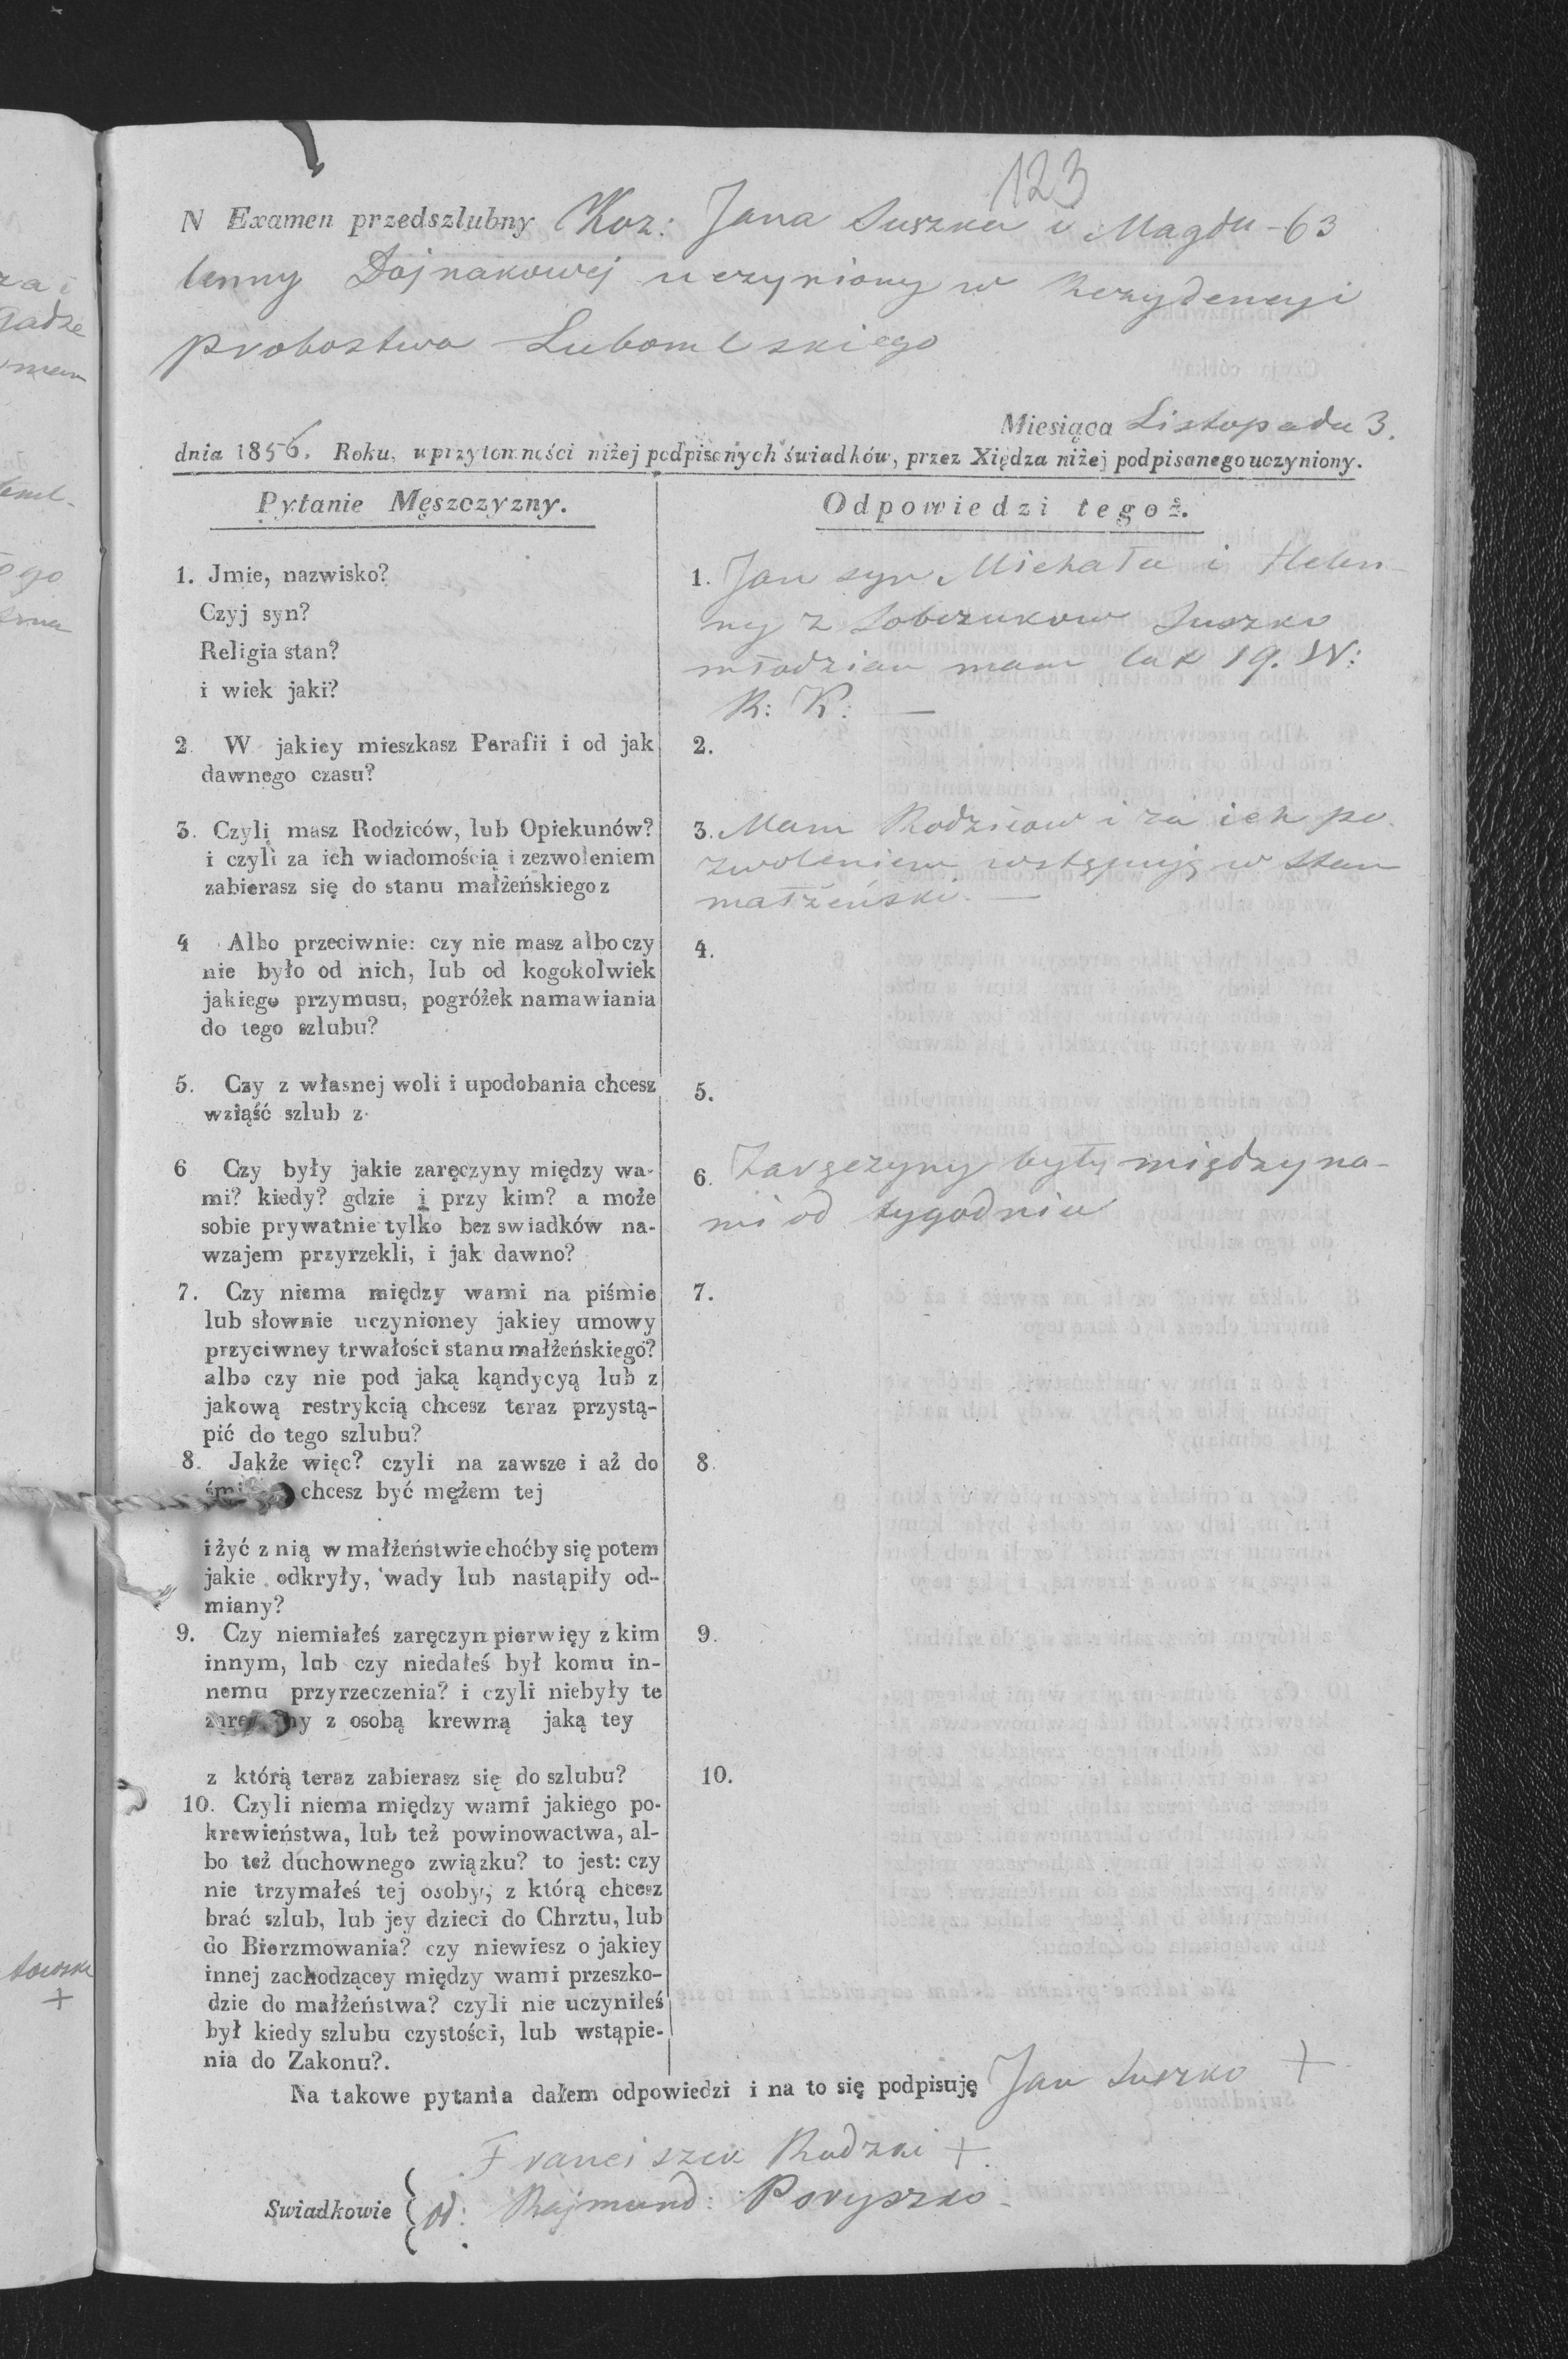 123
N Examen przedszlubny Koz: Jana Suszka i Magda- 63
lenny Dojnakowej uczyniony w Rezydencyi
probostwa Lubomlskiego
Miesiąca Listopada 3.
dnia 1856. Roku, uprzytomności niżej podpisanych świadków, przez Xiędza niżej podpisanego uczyniony.
Pytanie Męszczyzny.
Odpowiedzi tegoż.
1. Jmie, nazwisko?
Czyj syn?
Religia stan?
i wiek jaki?
1. Jan syn Michała i Helen-
ny z Sobczukow Suszko
młodzian mam lat 19. W:
R: K: —
2. W jakiey mieszkasz Parafii i od jak
dawnego czasu?
2.
3. Czyli masz Rodziców, lub Opiekunów?
i czyli za ich wiadomością i zezwoleniem
zabierasz się do stanu małżeńskiego z
3. Mam Rodzicow i za ich po-
zwoleniem wstępuję w stan
małżeński. —
4 Albo przeciwnie: czy nie masz albo czy
nie było od nich, lub od kogokolwiek
jakiego przymusu, pogróżek namawiania
do tego szlubu?
4.
5. Czy z własnej woli i upodobania chcesz
wziąść szlub z
5.
6 Czy były jakie zaręczyny między wa-
mi? kiedy? gdzie i przy kim? a może
sobie prywatnie tylko bez swiadków na-
wzajem przyrzekli, i jak dawno?
6. Zaręczyny były między na-
mi od tygodnia
7. Czy niema między wami na piśmie
lub słownie uczynioney jakiey umowy
przyciwney trwałości stanu małżeńskiego?
albo czy nie pod jaką kąndycyą lub z
jakową restrykcią chcesz teraz przystą-
pić do tego szlubu?
7.
8. Jakże więc? czyli na zawsze i aż do
chcesz być mężem tej
i żyć z nią w małżeństwie choćby się potem
jakie odkryły, wady lub nastąpiły od-
miany?
8.
9. Czy niemiałeś zaręczyn pierwięy z kim
innym, lub czy niedałeś był komu in-
nemu przyrzeczenia? i czyli niebyły te
z osobą krewną jaką tey
z którą teraz zabierasz się do szlubu?
9.
10. Czyli niema między wami jakiego po-
krewieństwa, lub też powinowactwa, al-
bo też duchownego związku? to jest: czy
nie trzymałeś tej osoby, z którą chcesz
brać szlub, lub jey dzieci do Chrztu, lub
do Bierzmowania? czy niewiesz o jakiey
innej zachodzącey między wami przeszko-
dzie do małżeństwa? czyli nie uczyniłeś
był kiedy szlubu czystości, lub wstąpie-
nia do Zakonu?.
10.
Na takowe pytania dałem odpowiedzi i na to się podpisuję Jan Suszko +
Franciszek Rudzki +
Swiadkowie Rajmund: Poryszko